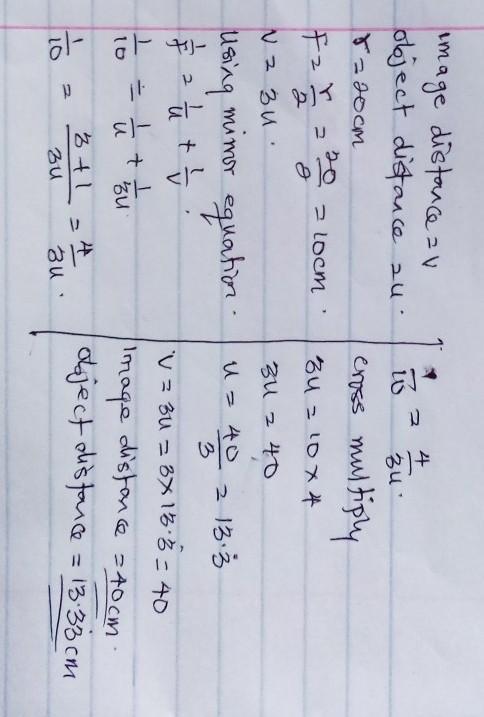 image distance = v
object distance = u.
r = 20cm
F = r/2 = 20/2 = 10cm.
v = 3u.
using mirror equation.
1/F = 1/u + 1/v.
1/10 = 1/u + 1/3u.
1/10 = 3+1/3u = 4/3u.
1/10 = 4/3u.
cross multiply
3u = 10 x 4
3u = 40
u = 40/3 = 13.3
v = 3u = 3 x 13.3 = 40
image distance = 40cm.
object distance = 13.33cm